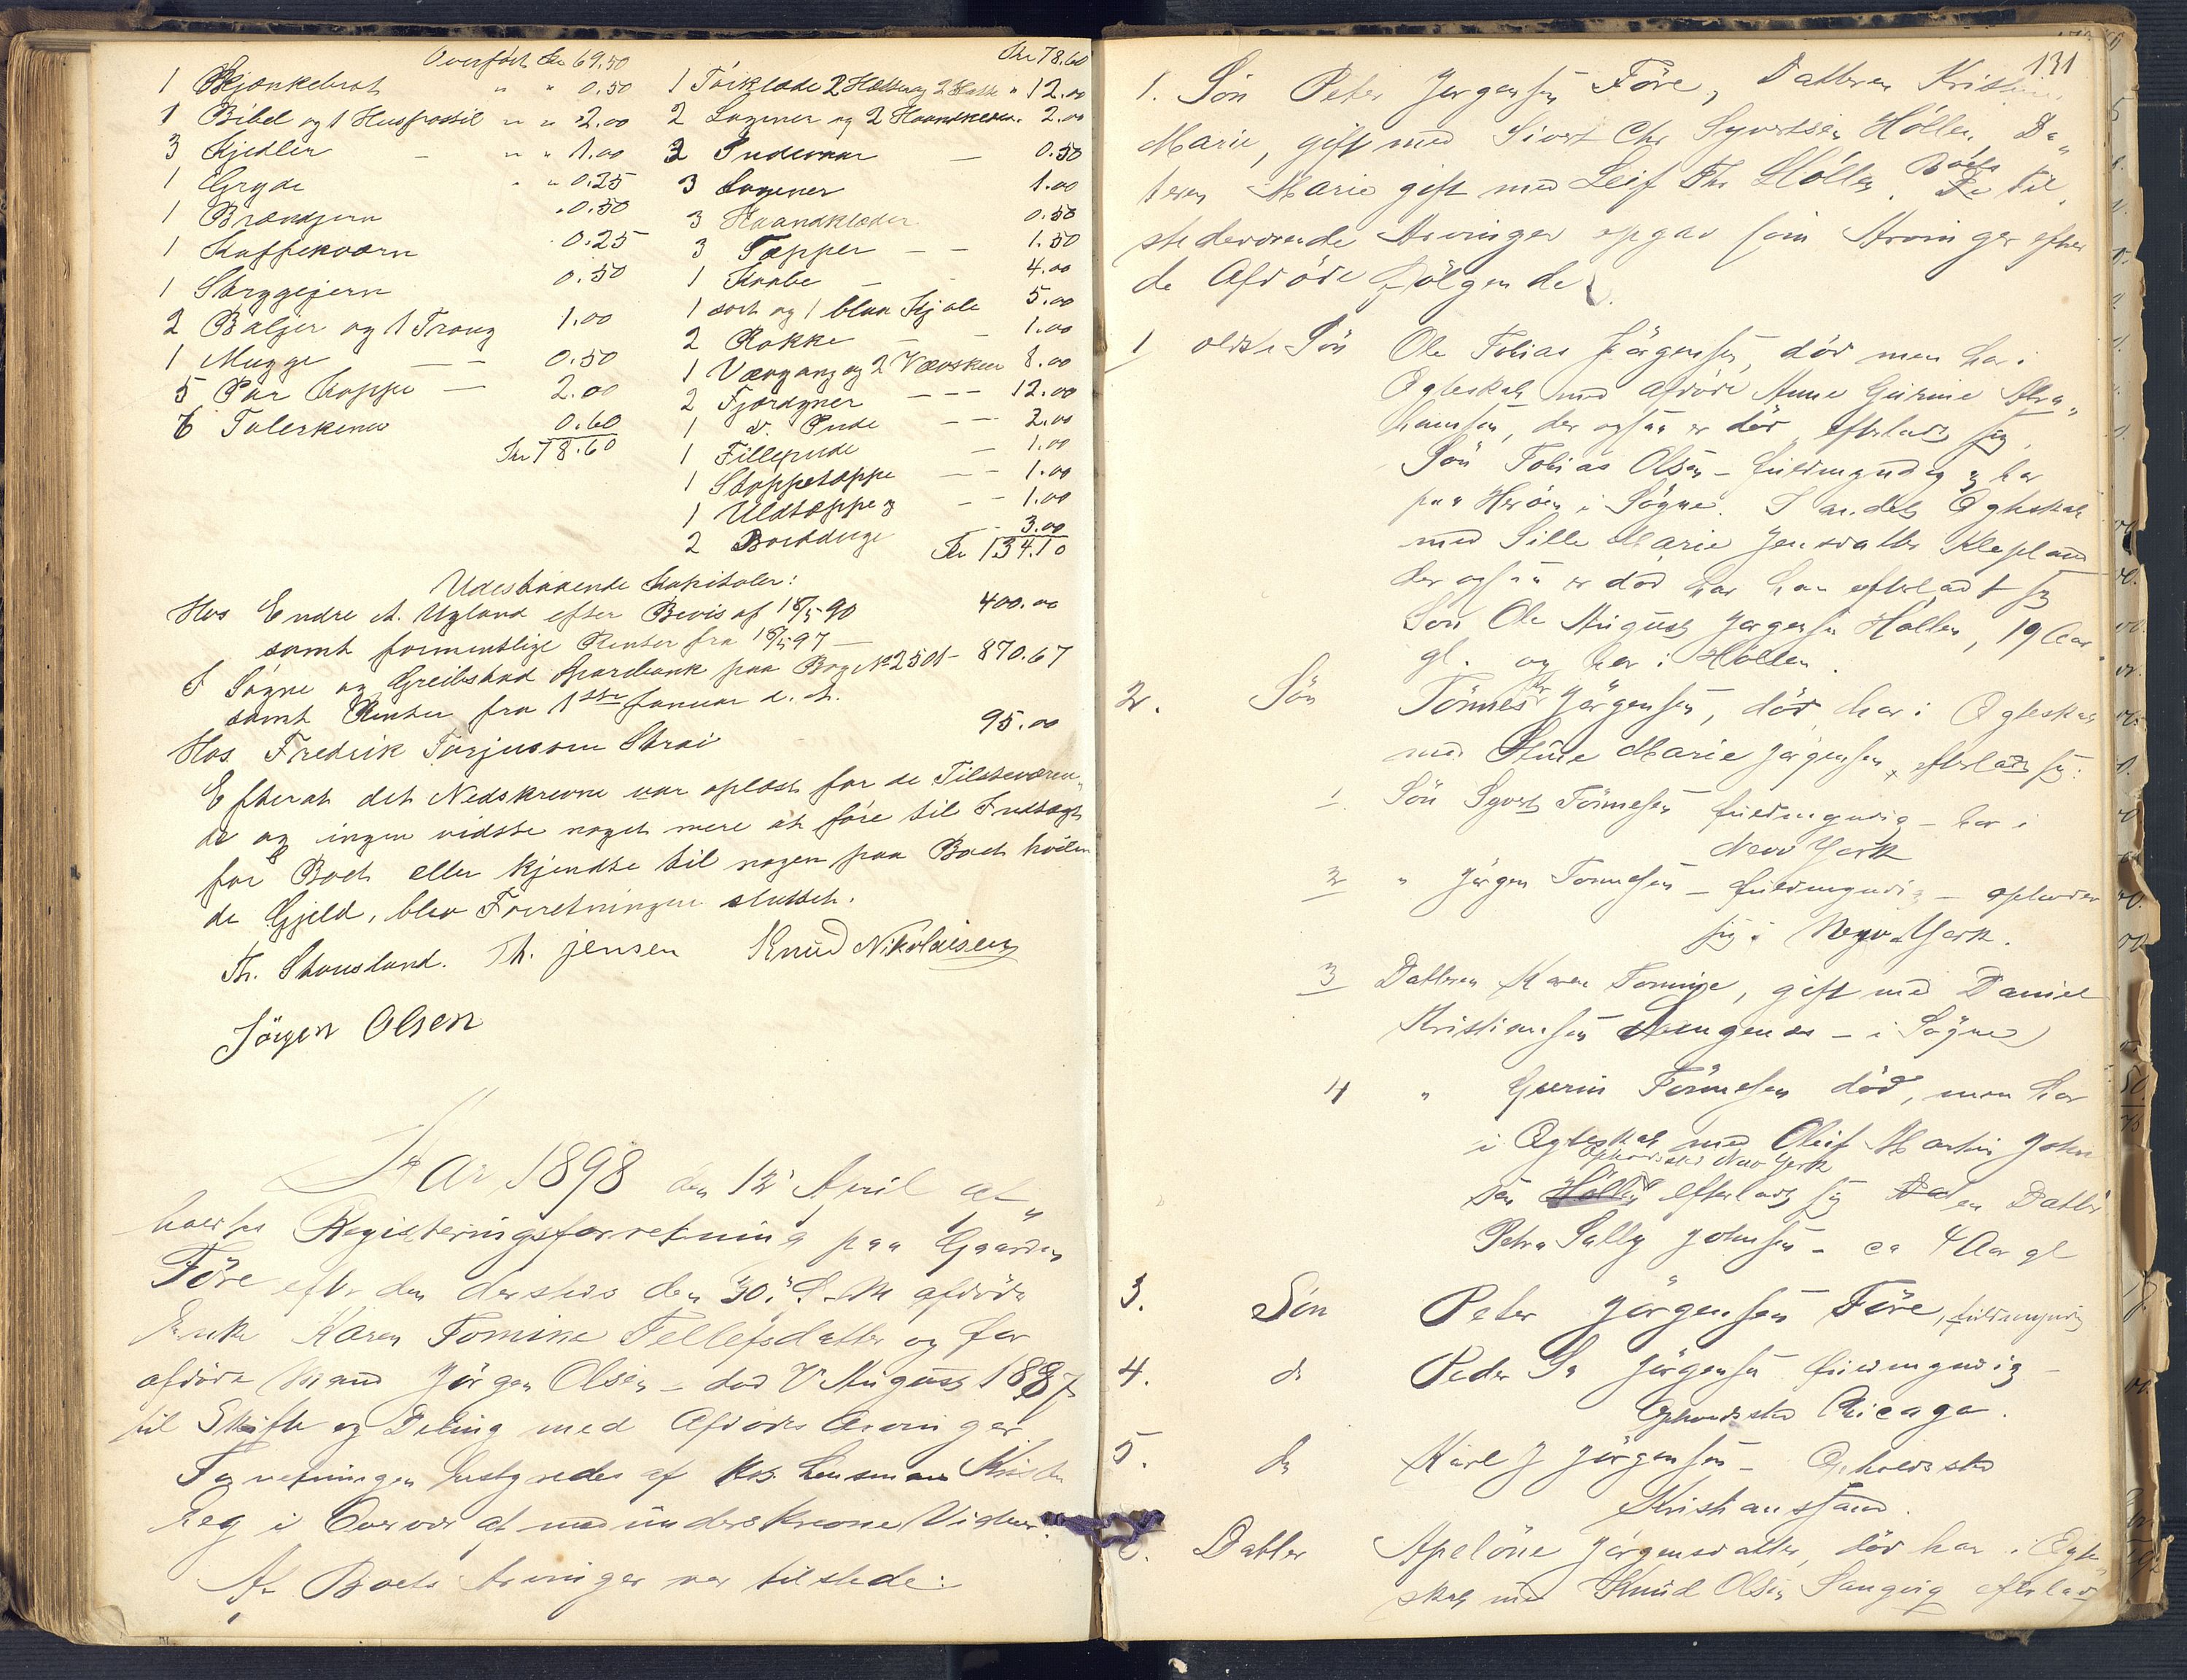 Overført Kr 69.50
1 Skjænkebret " " 0.50
1 Bibel og 1 Huspostil " " 2.00
3 Kjedler - " " 1.00
1 Gryde " " 0.25
1 Brændjern " 0.50
1 Kaffekværn 0.25
1 Strygejern 0.50
2 Baljer og 1 Traug 1.00
1 Mugge - - 0.50
5 Par Koppe - 2.00
6 Talerkener 0.60
Kr 78.60
Kr 78.60
1 " 12.00
2 Lagener og 2 Haandklæder 2.00
2 Pudevaar - 0.50
3 Lagener 1.00
3 Haandklæder 0.50
3 Tæpper - - 1.50
1 Kaabe - 4.00
1 sort og 1 blaa Kjole 5.00
2 Rokke - - 1.00
1 Vævgang og 2 Vævskeer 8.00
2 Fjærdyner - - - 12.00
1 d. Pude - - 2.00
1 Fillepude - 1.00
1 Stoppetæppe - - 1.00
1 Uldtæppe - - 1.00
2 Bordduge 3.00
Kr 134.10
Udestaaende Kapitaler:
Hos Endre A. Ugland efter Bevis af 18/5 90 400.00
samt formentlige Renter fra 18/5 97 -
I Søgne og Greibstad Sparebank paa Bog No 2501 - 870.67
samt Renter fra 1ste Januar d. A.
Hos Fredrik Torjussen Strai 95.00
Efterat det Nedskrevne var oplæst for de Tilsteværen„
de og ingen vidste noget mere at føre til Indtægt
for Boet eller kjendte til nogen paa Boet hvilen
de Gjeld, blev Forretningen sluttet.
Th. Stousland. Th. Jensen Knud Nikolaisen
Jörgen Olsen
Aar 1898 den 12' April af„
holdtes Registeringsforretning paa Gaarden
Føre efter den dersteds den 30. afdøde
Enke Karen Tomine Tellefsdatter og før
afdøde Mand Jörgen Olsen - død August 1887
til Skifte og Deling med Afdødes Arvinger
Foretningen bestyredes af Lensmand
i Overvær af medunderskrevne Vidner.
Af Boets Arvinger var tilstede:
131
1. Søn Peter Jørgensen Føre, Datteren Kristine
Marie, gift med Sivert Chr Syvertsen Høllen, Da„
teren Marie gift med Leif Th Høllen. Boets De til„
stedeværende Arvinger opgav som Arvinger efter
de Afdøde Følgende
1 ældste Søn Ole Tobias Jörgensen, død men har i
Ægteskab med afdøde Anne Gurine Abra„
hamsen, der ogsaa er død, efterladt sig
Søn Tobias Olsen - fuldmyndig og bor
paa Herøen i Søgne. I andet Ægteskab
med Sille Marie Jensdatter Klepland
der ogsaa er død har han efterladt sig
Søn Ole August Jørgensen Høllen, 19 Aar
gl. og bor i Høllen.
2. Søn Tönnes Jörgensen, död har i Ægteskab
med Stine Marie Jørgensen, efterladt sig:
1. Søn Syvert Tönnesen fuldmyndig - bor i
New York
2 " Jörgen Tönnesen - fuldmyndig - opholder
sig i New York.
3 Datteren Karen Tomine, gift med Daniel
Kristiansen - i Søgne
4 " Gurine Tönnesen död, men har
i Ægteskab med Oluf Martin John
Opholdssted New York
sen Höllen efterladt sig en Datter
Petra Sally Johnsen - ca 4 Aar gl
3. Søn Peter Jörgensen Føre, fuldmyndig
4. do Peder Jörgensen fuldmyndig -
Opholdssted Chicago.
5. do Karl J Jörgensen - Opholdssted
Kristianssand.
6. Datter Apelöne Jörgensdatter, död har i Ægte„
skab med Knud Olsen Langvig efterladt